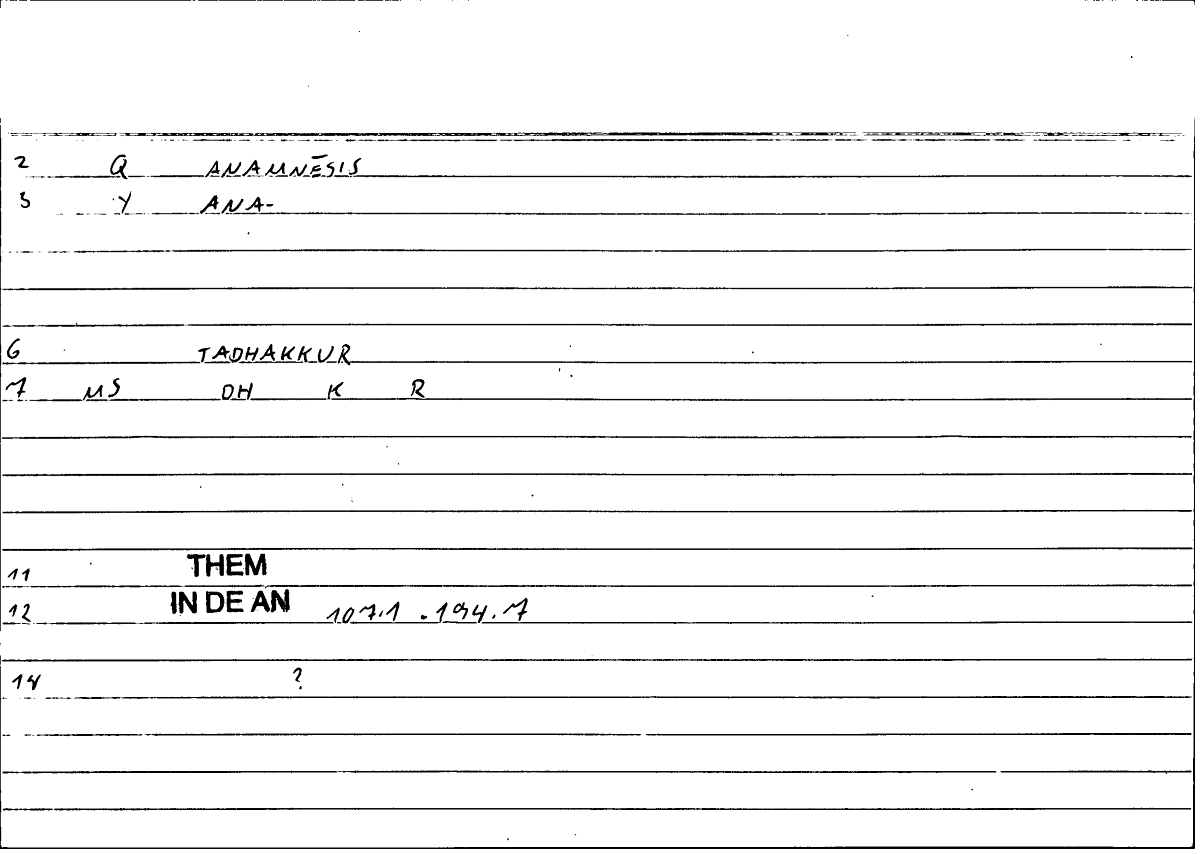 2 Q ANAMNĒSIS
3 Y ANA-
6 TADHAKKUR
7 MS DH K R
11 THEM
12 IN DE AN 107.1 . 194.7
14 ?